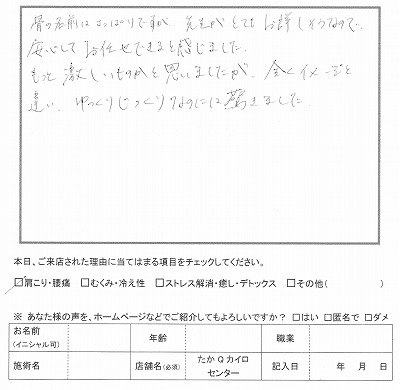 骨の名前はさっぱりですが、先生がとてもお詳しそうなので、
安心してお任せできると感じました。
もっと激しいものかと思いましたが、全くイメージと
違い、ゆっくりじっくりなのには驚きました。
本日、ご来店された理由に当てはまる項目をチェックしてください。
☑肩こり・腰痛 □むくみ・冷え性 □ストレス解消・癒し・デトックス □その他( )
※ あなた様の声を、ホームページなどでご紹介してもよろしいですか? □はい □匿名で □ダメ
お名前 年齢 職業
(イニシャル可)
施術名 店舗名(必須) たかQカイロ 記入日 年 月 日
センター